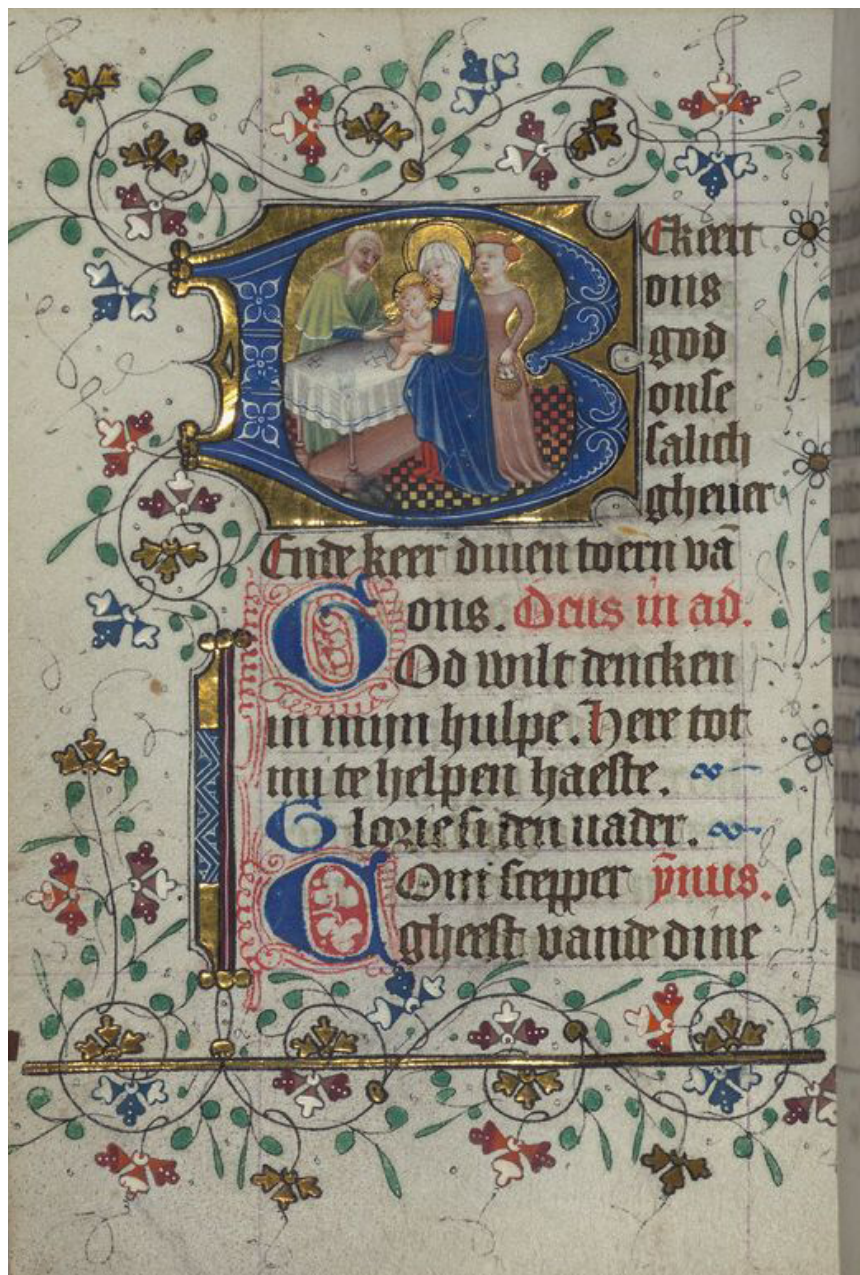 BEkeert
ons
god
onse
salich
gheuer
Ende keer dinen toern vā
ons. Deus in ad.
God wilt dencken
in mijn hulpe. Here tot
mi te helpen haeste.
Glorie si den uader.
Com scepper ȳnus.
gheest vande dine